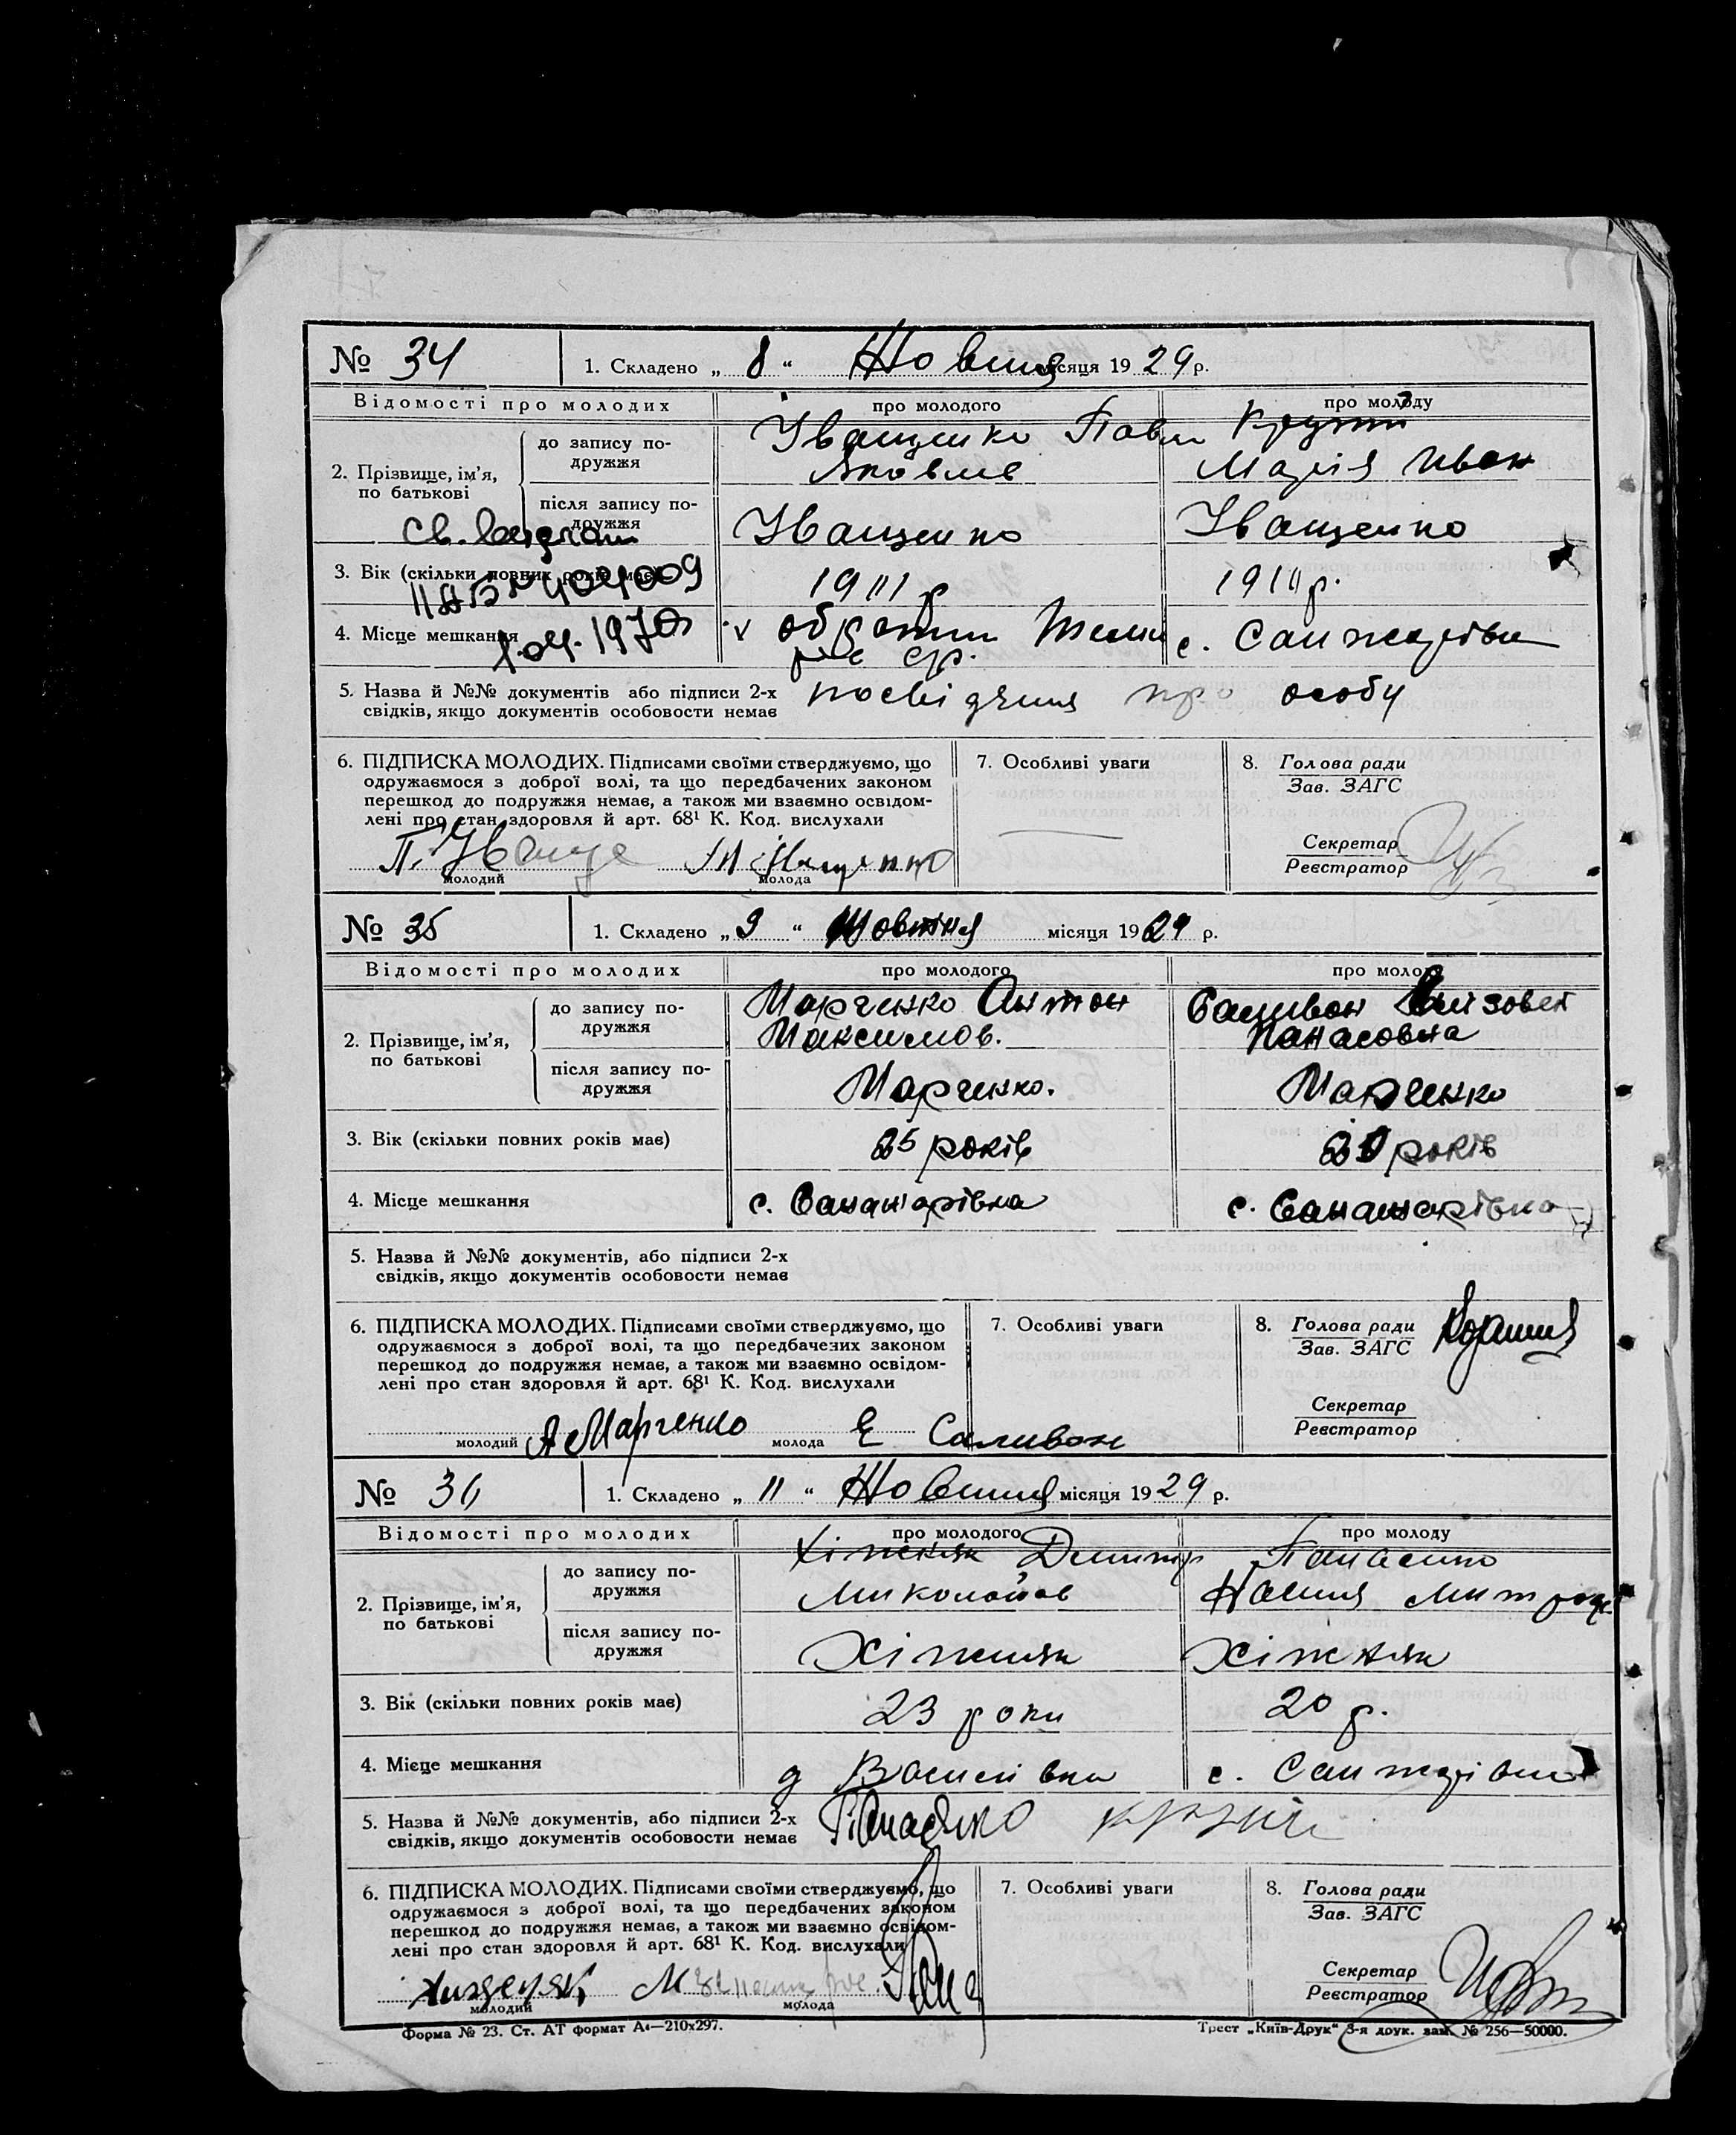 № 34 1. Складено „ 8 “ Жовтня місяця 1929 р.
Відомості про молодих про молодого про молоду
до запису по-
дружжя
Іващенко Павло
Яковлев
Марія Иван
2. Прізвище, ім’я,
по батькові
після запису по-
дружжя
Іващенко Іващенко
3. Вік (скільки повних років має) 1911 р 1911 р.
404009
4. Місце мешкання
1970
с.
5. Назва й №№ документів або підписи 2-х
свідків, якщо документів особовости немає
посвідчення про особу
6. ПІДПИСКА МОЛОДИХ. Підписами своїми стверджуємо, що
одружаємося з доброї волі, та що передбачених законом
перешкод до подружжя немає, а також ми взаємно освідом-
лені про стан здоровля й арт. 68¹ К. Код. вислухали
П. Іваще
молодий молода
7. Особливі уваги
8. Голова ради
Зав. ЗАГС
Секретар
Реєстратор
№ 35 1. Складено „ 9 “ Жовтня місяця 1929 р.
Відомості про молодих про молодого про молоду
до запису по-
дружжя
Марченко Антон
Максимов.
Саливон Єлизовет
Панасовна
2. Прізвище, ім’я,
по батькові
після запису по-
дружжя
Марченко. Марченко
3. Вік (скільки повних років має) 25 років років
4. Місце мешкання с. с.
5. Назва й №№ документів, або підписи 2-х
свідків, якщо документів особовости немає
6. ПІДПИСКА МОЛОДИХ. Підписами своїми стверджуємо, що
одружаємося з доброї волі, та що передбачених законом
перешкод до подружжя немає, а також ми взаємно освідом-
лені про стан здоровля й арт. 68¹ К. Код. вислухали
молодий А Марченко молода Є Саливон
7. Особливі уваги
8. Голова ради
Зав. ЗАГС
Секретар
Реєстратор
№ 36 1. Складено „ 11 “ Жовтня місяця 1929 р.
Відомості про молодих про молодого про молоду
до запису по-
дружжя
Хіжняк Дмитр
Миколайов
Панасенко
2. Прізвище, ім’я,
по батькові
після запису по-
дружжя
Хіжняк Хіжняк
3. Вік (скільки повних років має) 23 роки 20 р.
4. Місце мешкання д Василівка с.
5. Назва й №№ документів, або підписи 2-х
свідків, якщо документів особовости немає
Панасенко
6. ПІДПИСКА МОЛОДИХ. Підписами своїми стверджуємо, що
одружаємося з доброї волі, та що передбачених законом
перешкод до подружжя немає, а також ми взаємно освідом-
лені про стан здоровля й арт. 68¹ К. Код. вислухали
молодий молода
7. Особливі уваги
8. Голова ради
Зав. ЗАГС
Секретар
Реєстратор
Форма № 23. Ст. АТ формат А4—210х297.
Трест „Київ-Друк“ 3-я друк. зам. № 256—50000.